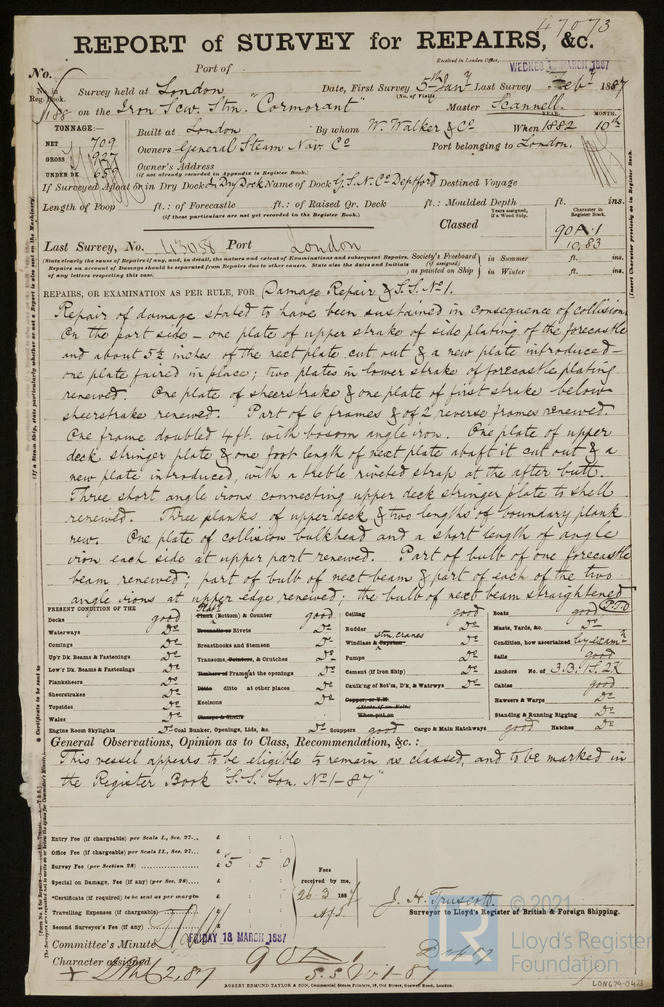 47073
REPORT of SURVEY for REPAIRS, &c.
Received in London Office, WEDNES MARCH 1887
No. Port of
No. in Reg. Book. Survey held at London Date, First Survey 5th Jany Last Survey Feby 1887
(No. of Visits)
188 on the Iron Scw. Stm. "Cormorant" Master Scannell.
TONNAGE:— Built at London By whom W. Walker & Co When 1882 YEAR. MONTH. 10th
NET 709
GROSS 927 Owners General Steam Nav. Co Port belonging to London.
UNDER DK 659 Owner's Address
(if not already recorded in Appendix to Register Book.)
If Surveyed Afloat or in Dry Dock In Dry Dock Name of Dock G.S.N. Co Deptford Destined Voyage
Length of Poop ft.: of Forecastle ft.: of Raised Qr. Deck ft.: Moulded Depth ft. ins.
(if these particulars are not yet recorded in the Register Book.)
Classed
Years assigned, if a Wood Ship.
Character in Register Book.
90A.1
10,83
Last Survey, No. 43088 Port London
(State clearly the cause of Repairs if any, and, in detail, the nature and extent of Examinations and subsequent Repairs.
Repairs on account of Damage should be separated from Repairs due to other causes. State also the dates and Initials
of any letters respecting this case.
Society's Freeboard (if assigned) as painted on Ship
in Summer ft. ins.
in Winter ft. ins.
REPAIRS, OR EXAMINATION AS PER RULE, FOR Damage Repair & S.S. No 1.
Repair of damage stated to have been sustained in consequence of collision
On the port side - one plate of upper strake of side plating of the forecastle
and about 5½ inches of the next plate cut out & a new plate introduced -
one plate faired in place; two plates in lower strake of forecastle plating
renewed. One plate of sheerstrake & one plate of first strake below
sheerstrake renewed. Part of 6 frames & of 2 reverse frames renewed.
One frame doubled 4 ft. with bosom angle iron. One plate of upper
deck stringer plate & one foot length of next plate abaft it cut out & a
new plate introduced, with a treble riveted strap at the after butt.
Three short angle irons connecting upper deck stringer plate to shell
renewed. Three planks of upper deck & two lengths of boundary plank
new. One plate of collision bulkhead and a short length of angle
iron each side at upper part renewed. Part of bulb of one forecastle
beam renewed; part of bulb of next beam & part of each of the two
angle irons at upper edge renewed; the bulb of next beam straightened P.T.O
PRESENT CONDITION OF THE
Decks good
Waterways Do
Comings Do
Up'r Dk. Beams & Fastenings Do
Low'r Dk. Beams & Fastenings Do
Planksheers Do
Sheerstrakes Do
Topsides Do
Wales Do
Engine Room Skylights Do
Plates
Plank (Bottom) & Counter good
Treenails or Rivets Do
Breasthooks and Stemson Do
Transoms, Pointers, & Crutches Do
Timbers of Frame at the openings Do
Ditto ditto at other places Do
Keelsons Do
Clamps & Shelfs
Coal Bunker, Openings, Lids, &c. Do
Ceiling good
Rudder Do
stm. cranes
Windlass & Capstan Do
Pumps Do
Cement (if Iron Ship) Do
Caulk'ng of Bot'm, D'k, & Watrwys Do
Copper, or Y.M.
(State if on Felt)
When put on
Scuppers good
Cargo & Main Hatchways good
Boats good
Masts, Yards, &c. Do
Condition, how ascertained by exam'n
Sails good
Anchors No. of 3.B. 1S. 2K
Cables good
Hawsers & Warps Do
Standing & Running Rigging Do
Hatches Do
General Observations, Opinion as to Class, Recommendation, &c.:
This vessel appears to be eligible to remain as classed, and to be marked in
the Register Book "S.S. Lon. No 1-87"
Entry Fee (if chargeable) per Scale I., Sec. 27... £ : :
Office Fee (if chargeable) per Scale II., Sec. 27... £ : :
Survey Fee (per Section 28) £ 5 : 5 : 0
Special on Damage, Fee (if any) (per Sec. 28) £ : :
Certificate (if required) to be sent as per margin £ : :
Travelling Expenses (if chargeable) £ : :
Second Surveyor's Fee (if any) £ : :
Fees received by me,
26.3 1887
J. H. Truscott
Surveyor to Lloyd's Register of British & Foreign Shipping.
Committee's Minute FRIDAY 18 MARCH 1887
Character assigned 90A1
S.S. No 1-87
2,87
ROBERT EDMUND TAYLOR & SON, Commercial Steam Printers, 19, Old Street, Goswell Road, London.
© 2021
Lloyd's Register
Foundation
LON674-0423